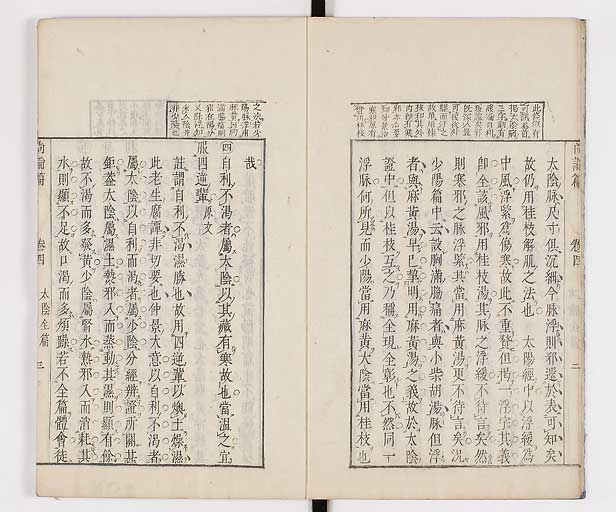 太陰脉尺寸俱沉細今脉浮則邪還於表可知矣
故仍用桂枝解肌之法也　太陽經中以浮緩為
中風浮緊為傷寒故此不重贅但揭一浮字其義
即全該風邪用桂枝湯其脉之浮緩不待言矣然
則寒邪之脉浮緊其當用麻黃湯更不待言矣況
少陽篇中云設胸滿脇痛者與小柴胡湯脉但浮
者與麻黃湯早已挈明用麻黃湯之義故於太陰
證中但以桂枝互之乃稱全現全彰也不然同一
浮脉何所見而少陽當用麻黃太陰當用桂枝也
尚論篇　卷四　二
哉
四自利不渴者屬太陰以其藏有寒故也當溫之宜
服四逆輩　原文
註謂自利不渴濕勝也故用四逆輩以燠土燥濕
此老生腐譚非切要也仲景大意以自利不渴者
屬太陰以自利而渴者屬少陰分經辨證所關甚
鉅蓋太陰屬濕土熱邪入而蒸動其濕則顯有餘
故不渴而多發黃少陰屬腎水熱邪入而消耗其
水則顯不足故口渴而多煩躁若不全篇體會徒
尚論篇　卷四　太陰全篇　三